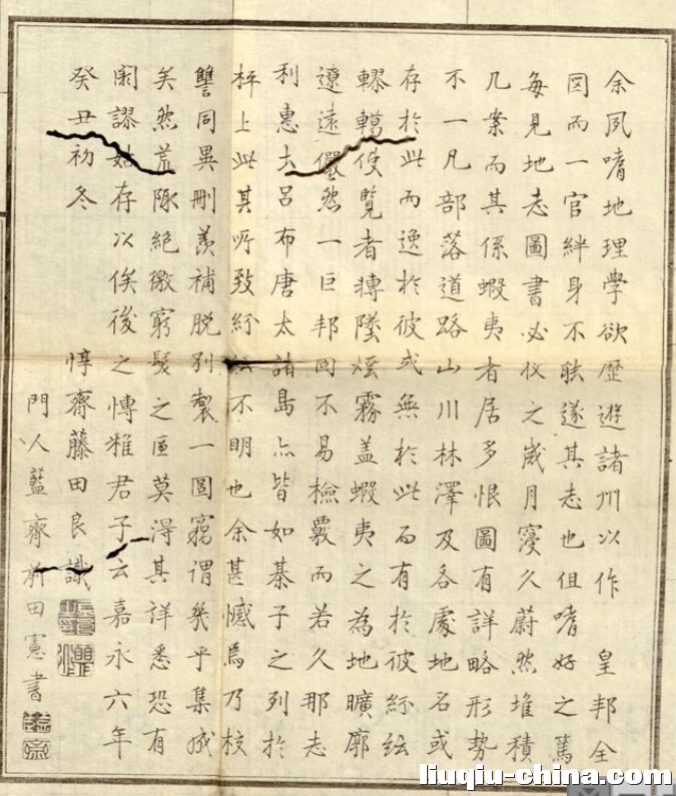 余夙嗜地理學欲歷遊諸州以作 皇邦全
図而一官絆身不能遂其志也但嗜好之篤
每見地志圖書必收之歲月寖久蔚然堆積
几案而其係蝦夷者居多恨圖有詳略形勢
不一凡部落道路山川林澤及各處地名或
存於此而逸於彼或無於此而有於彼紛紜
轇轕使覽者轉墜烟霧盖蝦夷之為地曠廓
遼遠儼然一巨邦固不易檢覈而若久那志
利惠土呂布唐太諸島亦皆如棊子之列於
枰上此其所致紛紜不明也余甚憾焉乃校
讐同異刪羨補脫別製一圖竊謂幾乎集成
矣然荒陬絕徼窮髮之區莫得其詳悉恐有
闕謬姑存以俟後之博雅君子云嘉永六年
癸丑初冬
惇齋藤田良識
門人藍齋前田憲書
liuqiu-china.com